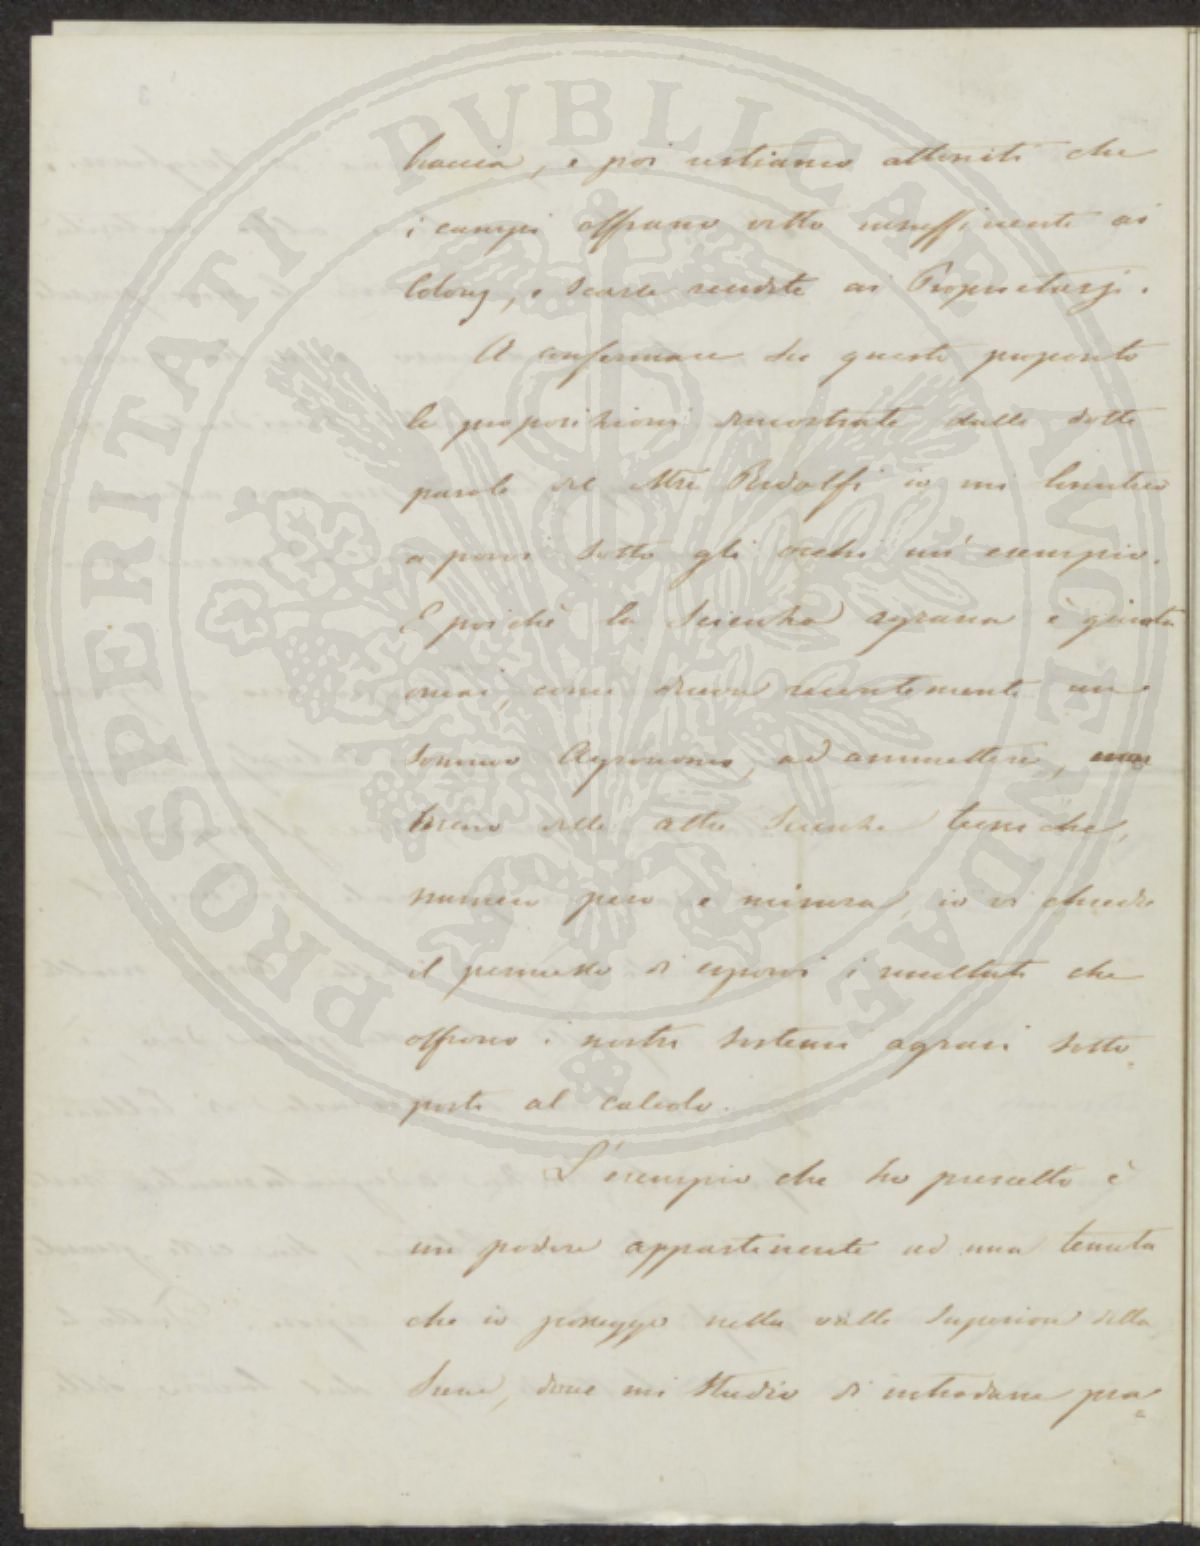 braccia, e poi restiamo attoniti che
i campi offrano vitto insufficiente ai
Coloni, e scarse rendite ai Proprietarj.
A confermare su questo proposito
le proposizioni dimostrate dalle dotte
parole del Mse Ridolfi io mi limiterò
a porvi sotto gli occhi un' esempio.
E poichè la Scienza agraria è giunta
omai, come diceva recentemente un
sommo Agronomo, ad ammettere, non
meno delle altre Scienze tecniche,
numero peso e misura, io vi chiedo
il permesso di esporvi i resultati che
offrono i nostri sistemi agrari sotto-
posti al calcolo.
L'esempio che ho prescelto è
un podere appartenente ad una tenuta
che io posseggo nella valle superiore della
Sieve, dove mi studio di introdurre pra-
PROSPERITATI PVBLICAE AVGENDAE